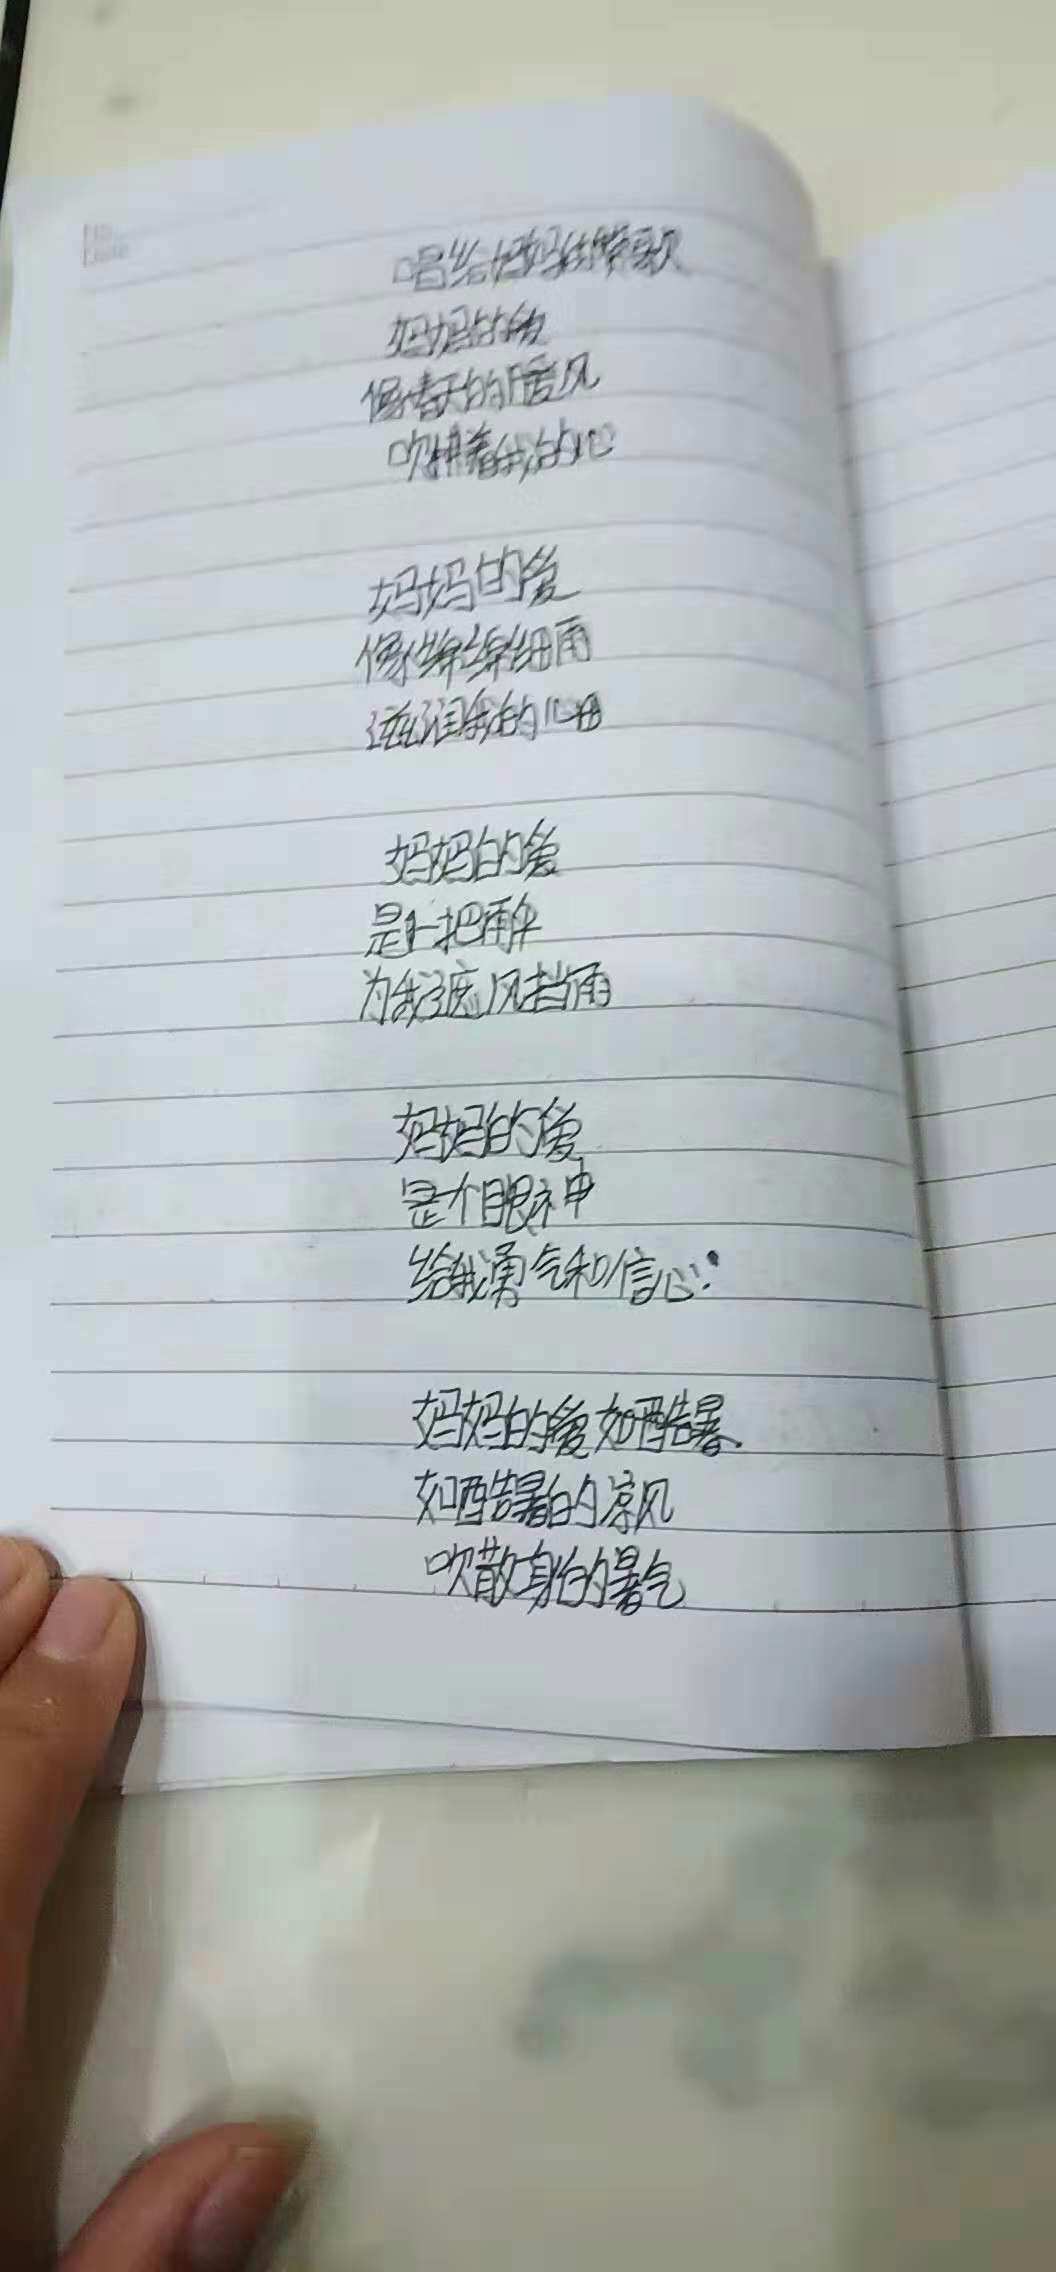 唱给妈妈的赞歌
妈妈的爱
像春天的暖风
吹拂着我的心
妈妈的爱
像绵绵细雨
滋润我的心田
妈妈的爱
是一把雨伞
为我遮风挡雨
妈妈的爱
是个眼神
给我勇气和信心
妈妈的爱如酷暑
如酷暑的凉风
吹散身的暑气